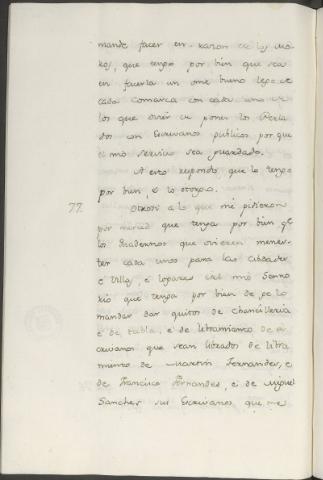 mande facer en razon de los mo-
ros, que tenga por bien que sea
en facerla un ome bueno lego de
cada comarca con cada uno de
los que ovier de poner los Perla
dos con Escrivanos publicos, por que
el mio servicio sea guardado.
A esto respondo, que lo tengo
por bien, e lo otorgo.
77 Otrosi a lo que me pidieron
por merced que tenga por bien q.e
los quadernos que ovieren menes-
ter cada unos para las cibdades
e villas, e logares del mio Senno
rio que tenga por bien de ge lo
mandar dar quitos de chancilleria
e de tabla, e de libramiento de es
crivanos que sean librados de libra
miento de Martin Fernandez, e
de Francisco Fernandez, e de Miguel
Sanchez sus Escrivanos que me